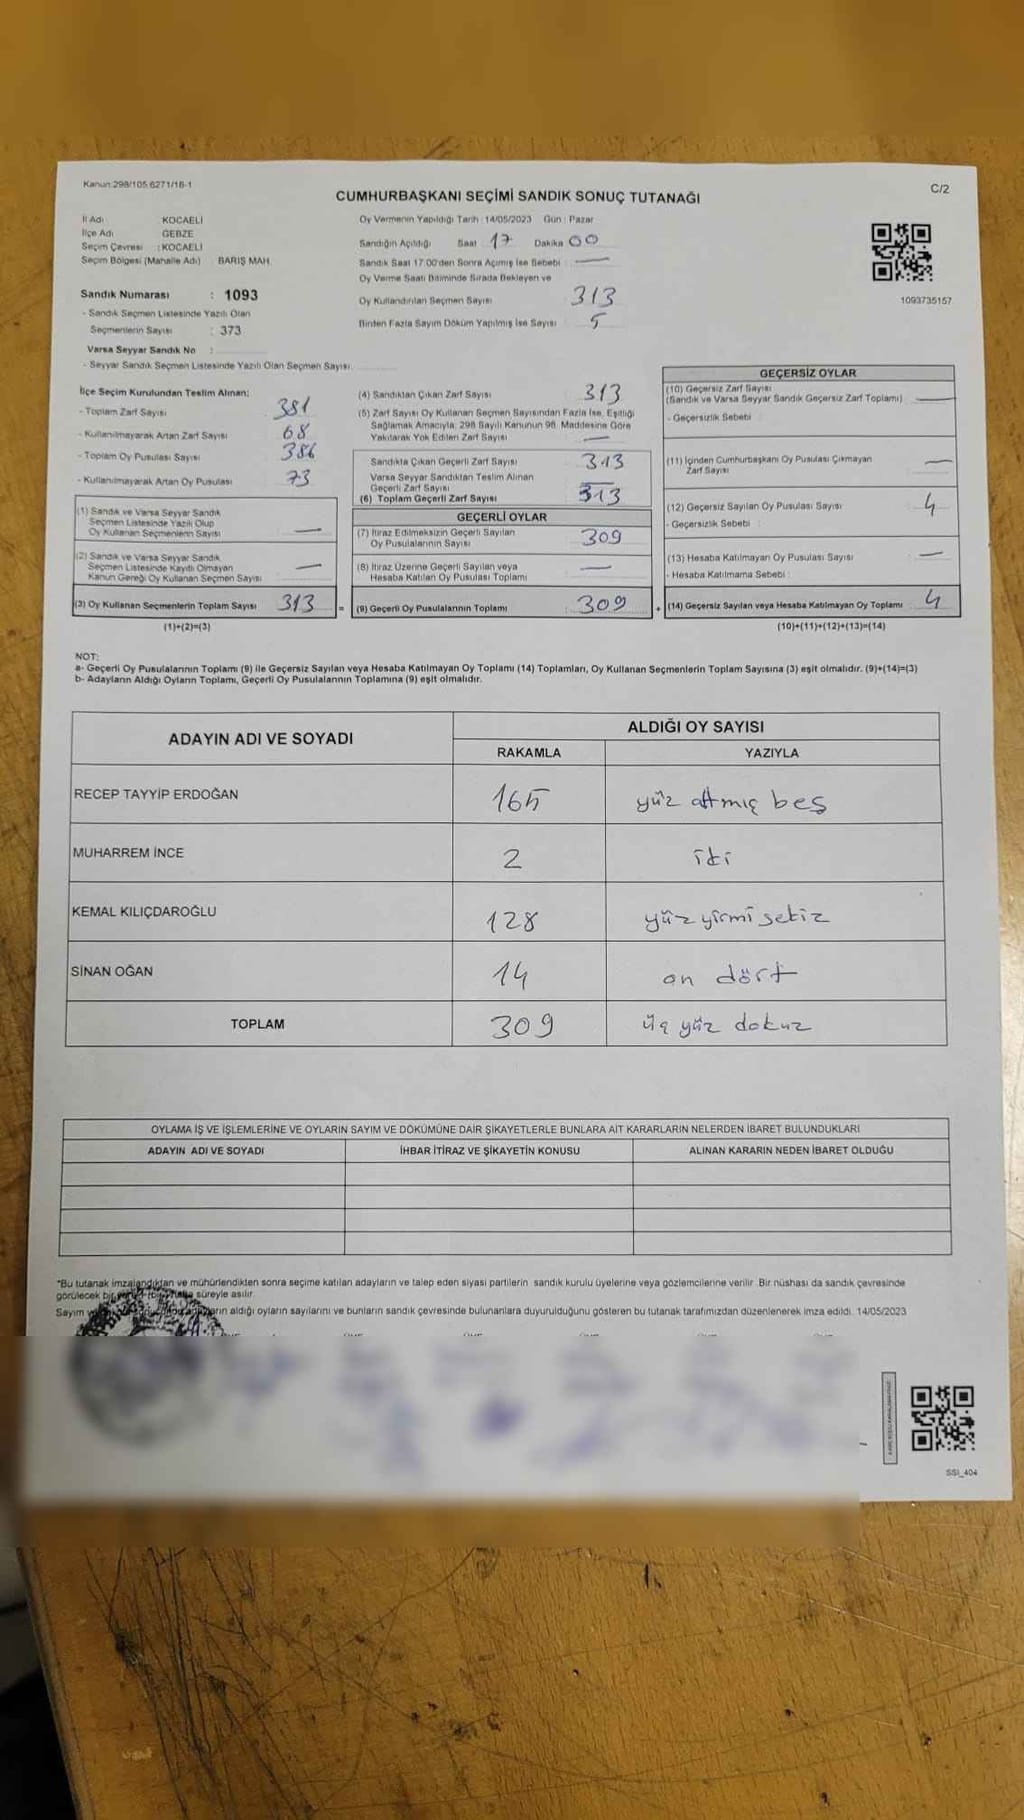 Kanun:298/105.6271/16-1
C/2
CUMHURBAŞKANI SEÇİMİ SANDIK SONUÇ TUTANAĞI
İl Adı : KOCAELİ
İlçe Adı : GEBZE
Seçim Çevresi : KOCAELİ
Seçim Bölgesi (Mahalle Adı) : BARIŞ MAH.
Sandık Numarası : 1093
- Sandık Seçmen Listesinde Yazılı Olan
Seçmenlerin Sayısı : 373
Varsa Seyyar Sandık No :
- Seyyar Sandık Seçmen Listesinde Yazılı Olan Seçmen Sayısı
Oy Vermenin Yapıldığı Tarih : 14/05/2023 Gün : Pazar
Sandığın Açıldığı Saat 17 Dakika 00
Sandık Saat 17:00'den Sonra Açılmış İse Sebebi : —
Oy Verme Saati Bitiminde Sırada Bekleyen ve
Oy Kullandırılan Seçmen Sayısı 313
Birden Fazla Sayım Döküm Yapılmış İse Sayısı 5
1093735157
İlçe Seçim Kurulundan Teslim Alınan;
- Toplam Zarf Sayısı 381
- Kullanılmayarak Artan Zarf Sayısı 68
- Toplam Oy Pusulası Sayısı 386
- Kullanılmayarak Artan Oy Pusulası 73
(1) Sandık ve Varsa Seyyar Sandık
Seçmen Listesinde Yazılı Olup
Oy Kullanan Seçmenlerin Sayısı —
(2) Sandık ve Varsa Seyyar Sandık
Seçmen Listesinde Kayıtlı Olmayan
Kanun Gereği Oy Kullanan Seçmen Sayısı —
(3) Oy Kullanan Seçmenlerin Toplam Sayısı 313 =
(1)+(2)=(3)
(4) Sandıktan Çıkan Zarf Sayısı 313
(5) Zarf Sayısı Oy Kullanan Seçmen Sayısından Fazla İse, Eşitliği
Sağlamak Amacıyla; 298 Sayılı Kanunun 98. Maddesine Göre
Yakılarak Yok Edilen Zarf Sayısı —
Sandıkta Çıkan Geçerli Zarf Sayısı 313
Varsa Seyyar Sandıktan Teslim Alınan
Geçerli Zarf Sayısı —
(6) Toplam Geçerli Zarf Sayısı 313
GEÇERLİ OYLAR
(7) İtiraz Edilmeksizin Geçerli Sayılan
Oy Pusulalarının Sayısı 309
(8) İtiraz Üzerine Geçerli Sayılan veya
Hesaba Katılan Oy Pusulası Toplamı —
(9) Geçerli Oy Pusulalarının Toplamı 309 +
GEÇERSİZ OYLAR
(10) Geçersiz Zarf Sayısı
(Sandık ve Varsa Seyyar Sandık Geçersiz Zarf Toplamı) —
- Geçersizlik Sebebi :
(11) İçinden Cumhurbaşkanı Oy Pusulası Çıkmayan
Zarf Sayısı —
(12) Geçersiz Sayılan Oy Pusulası Sayısı 4
- Geçersizlik Sebebi :
(13) Hesaba Katılmayan Oy Pusulası Sayısı —
- Hesaba Katılmama Sebebi :
(14) Geçersiz Sayılan veya Hesaba Katılmayan Oy Toplamı 4
(10)+(11)+(12)+(13)=(14)
NOT:
a- Geçerli Oy Pusulalarının Toplamı (9) ile Geçersiz Sayılan veya Hesaba Katılmayan Oy Toplamı (14) Toplamları, Oy Kullanan Seçmenlerin Toplam Sayısına (3) eşit olmalıdır. (9)+(14)=(3)
b- Adayların Aldığı Oyların Toplamı, Geçerli Oy Pusulalarının Toplamına (9) eşit olmalıdır.
ADAYIN ADI VE SOYADI
ALDIĞI OY SAYISI
RAKAMLA YAZIYLA
RECEP TAYYİP ERDOĞAN 165 yüz altmış beş
MUHARREM İNCE 2 iki
KEMAL KILIÇDAROĞLU 128 yüz yirmi sekiz
SİNAN OĞAN 14 on dört
TOPLAM 309 üç yüz dokuz
OYLAMA İŞ VE İŞLEMLERİNE VE OYLARIN SAYIM VE DÖKÜMÜNE DAİR ŞİKAYETLERLE BUNLARA AİT KARARLARIN NELERDEN İBARET BULUNDUKLARI
ADAYIN ADI VE SOYADI İHBAR İTİRAZ VE ŞİKAYETİN KONUSU ALINAN KARARIN NEDEN İBARET OLDUĞU
*Bu tutanak imzalandıktan ve mühürlendikten sonra seçime katılan adayların ve talep eden siyasi partilerin sandık kurulu üyelerine veya gözlemcilerine verilir. Bir nüshası da sandık çevresinde
görülecek bir süreyle asılır.
Sayım aldığı oyların sayılarını ve bunların sandık çevresinde bulunanlara duyurulduğunu gösteren bu tutanak tarafımızdan düzenlenerek imza edildi. 14/05/2023
SSI_404